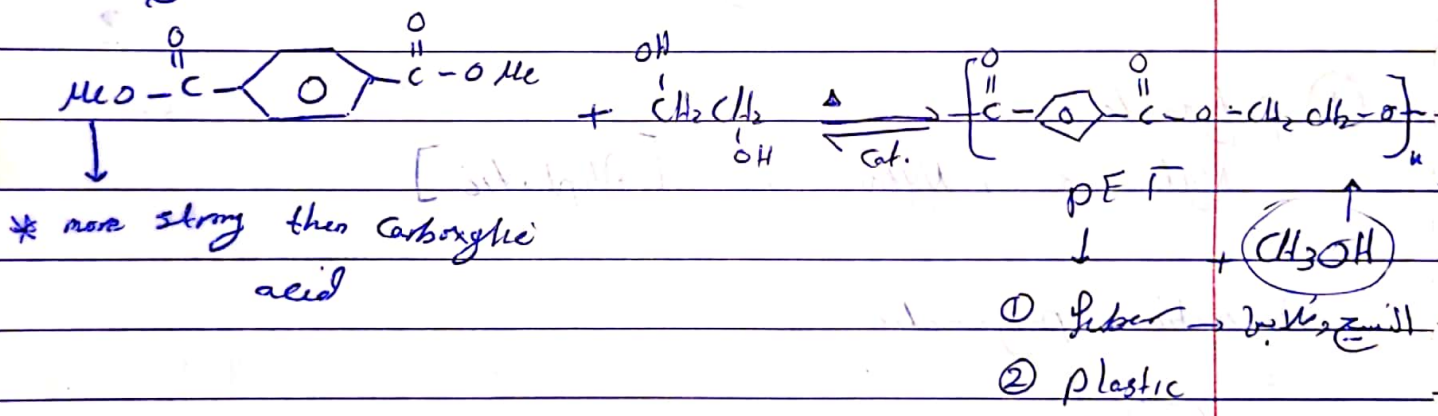 MeO-C(=O)-⌬-C(=O)-O Me + OH CH2 CH2 OH ⇌ Δ Cat. [C(=O)-⌬-C(=O)-O-CH2 CH2-O]n
PET
* more strong then Carboxylic
acid
+ CH3OH
① fiber → النسيج وملابس
② plastic